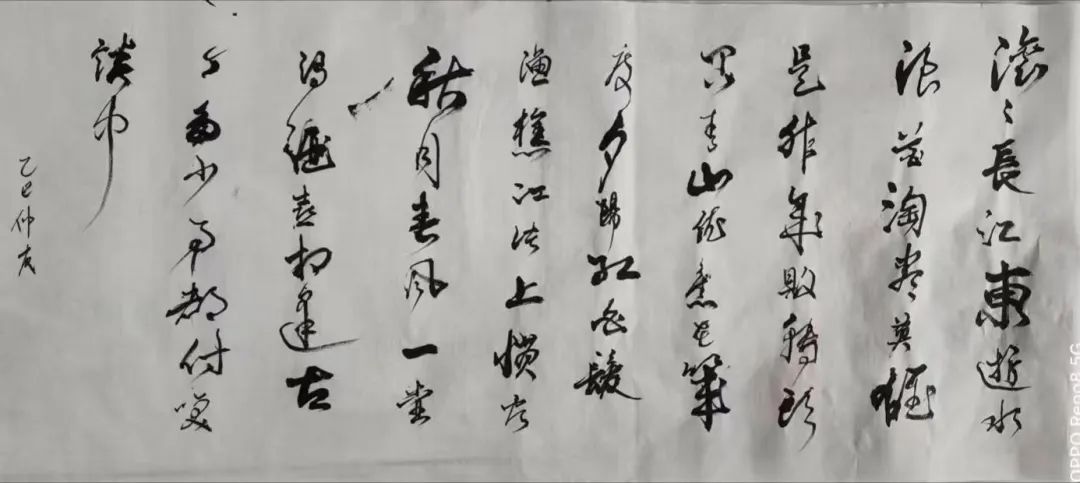 滚々長江東逝水
浪花淘尽英雄
是非成敗轉頭
空青山依舊在幾
度夕陽红白髮
漁樵江渚上惯看
秋月春风一壶
濁酒喜相逢古
今多少事都付笑
談中
乙巳仲夏
OPPO Reno8 5G